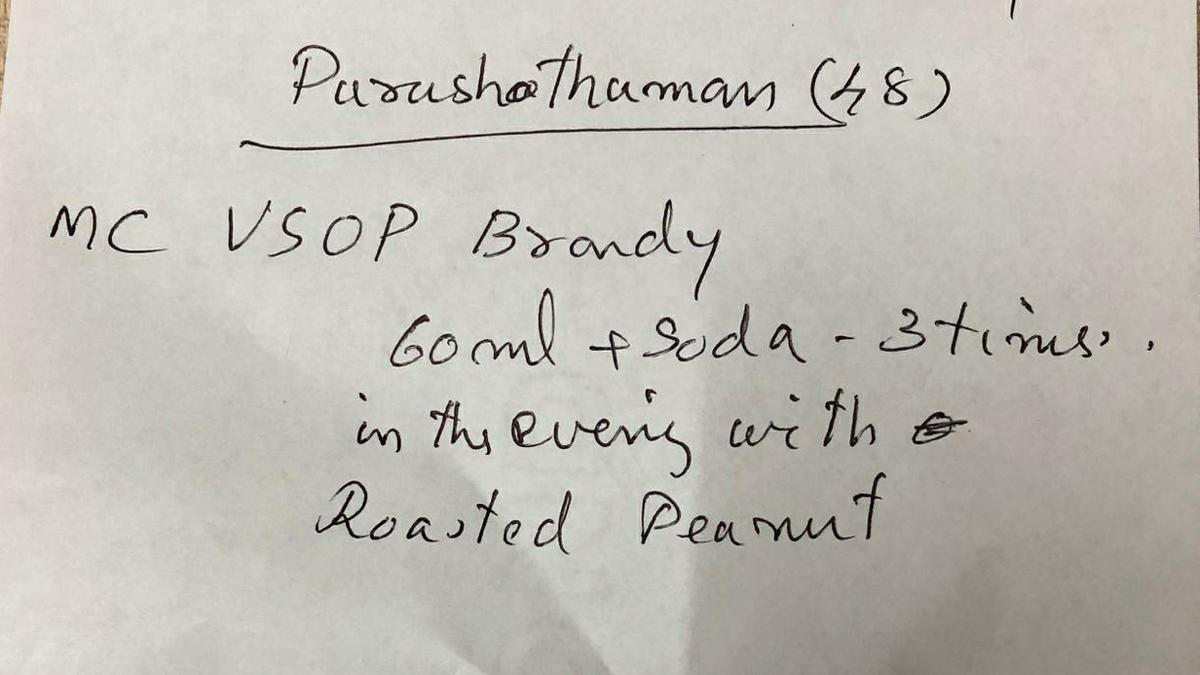 Purushothaman (48)
MC VSOP Brandy
60 ml + Soda - 3 times.
in the evening with
Roasted Peanut